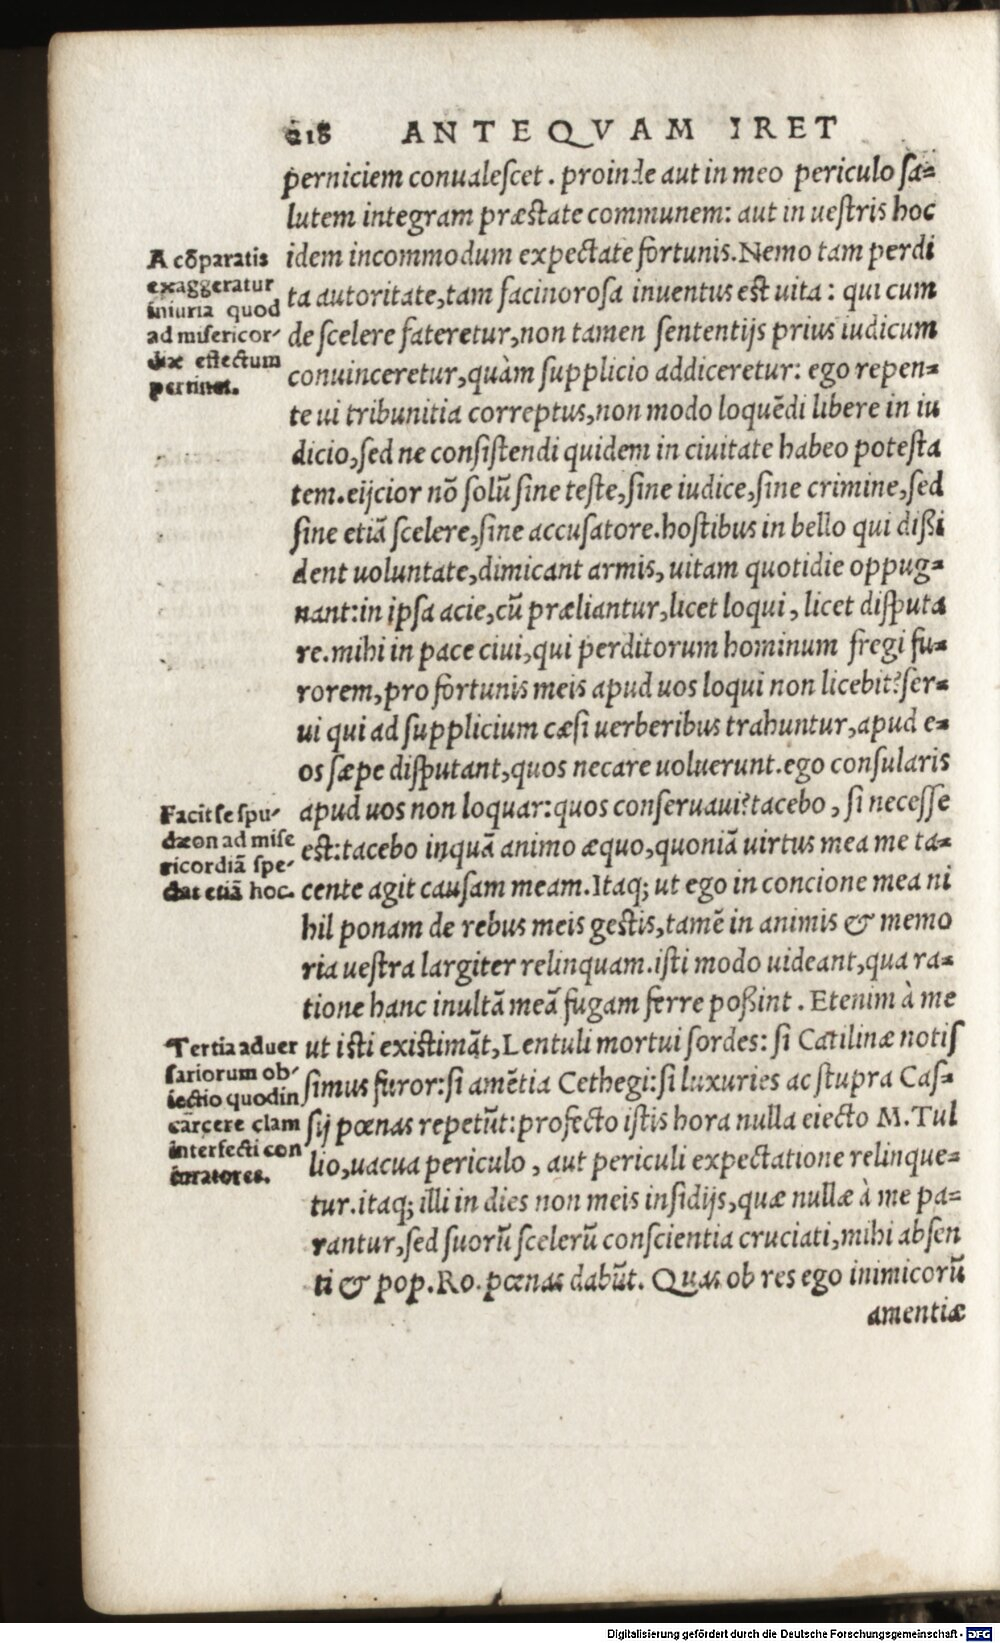 218 ANTEQVAM IRET
perniciem conualeſcet. proinde aut in meo periculo ſa=
lutem integram præſtate communem: aut in ueſtris hoc
idem incommodum expectate fortunis. Nemo tam perdi
ta autoritate, tam facinoroſa inuentus est uita: qui cum
de ſcelere fateretur, non tamen ſententijs prius iudicum
conuinceretur, quàm ſupplicio addiceretur: ego repen=
te ui tribunitia correptus, non modo loquẽdi libere in iu
dicio, ſed ne conſiſtendi quidem in ciuitate habeo poteſta
tem. eijcior nõ ſolũ ſine teſte, ſine iudice, ſine crimine, ſed
ſine etiã ſcelere, ſine accuſatore. hoſtibus in bello qui dißi
dent uoluntate, dimicant armis, uitam quotidie oppug=
nant: in ipſa acie, cũ præliantur, licet loqui, licet diſputa
re. mihi in pace ciui, qui perditorum hominum fregi fu=
rorem, pro fortunis meis apud uos loqui non licebit? ſer=
ui qui ad ſupplicium cæſi uerberibus trahuntur, apud e=
os ſæpe diſputant, quos necare uoluerunt. ego conſularis
apud uos non loquar: quos conſeruaui? tacebo, ſi neceſſe
est: tacebo inquã animo æquo, quoniã uirtus mea me ta=
cente agit cauſam meam. Itaq; ut ego in concione mea ni
hil ponam de rebus meis gestis, tamẽ in animis & memo
ria ueſtra largiter relinquam. iſti modo uideant, qua ra=
tione hanc inultã meã fugam ferre poßint. Etenim à me
ut isti existimãt, Lentuli mortui ſordes: ſi Catilinæ notiſ
ſimus furor: ſi amẽtia Cethegi: ſi luxuries ac ſtupra Caſ=
ſij pœnas repetũt: profecto iſtis hora nulla eiecto M. Tul
lio, uacua periculo, aut periculi expectatione relinque=
tur. itaq; illi in dies non meis inſidijs, quæ nullæ à me pa=
rantur, ſed ſuorũ ſcelerũ conſcientia cruciati, mihi abſen
ti & pop. Ro. pœnas dabũt. Quas ob res ego inimicorũ
amentiæ
A cõparatis
exaggeratur
iniuria quod
ad miſericor-
diæ effectum
pertinet.
Facit ſe ſpu-
dæon ad miſe
ricordiã ſpe-
ctat etiã hoc.
Tertia aduer
ſariorum ob-
iectio quod in
carcere clam
interfecti con
iuratores.
Digitalisierung gefördert durch die Deutsche Forschungsgemeinschaft - DFG